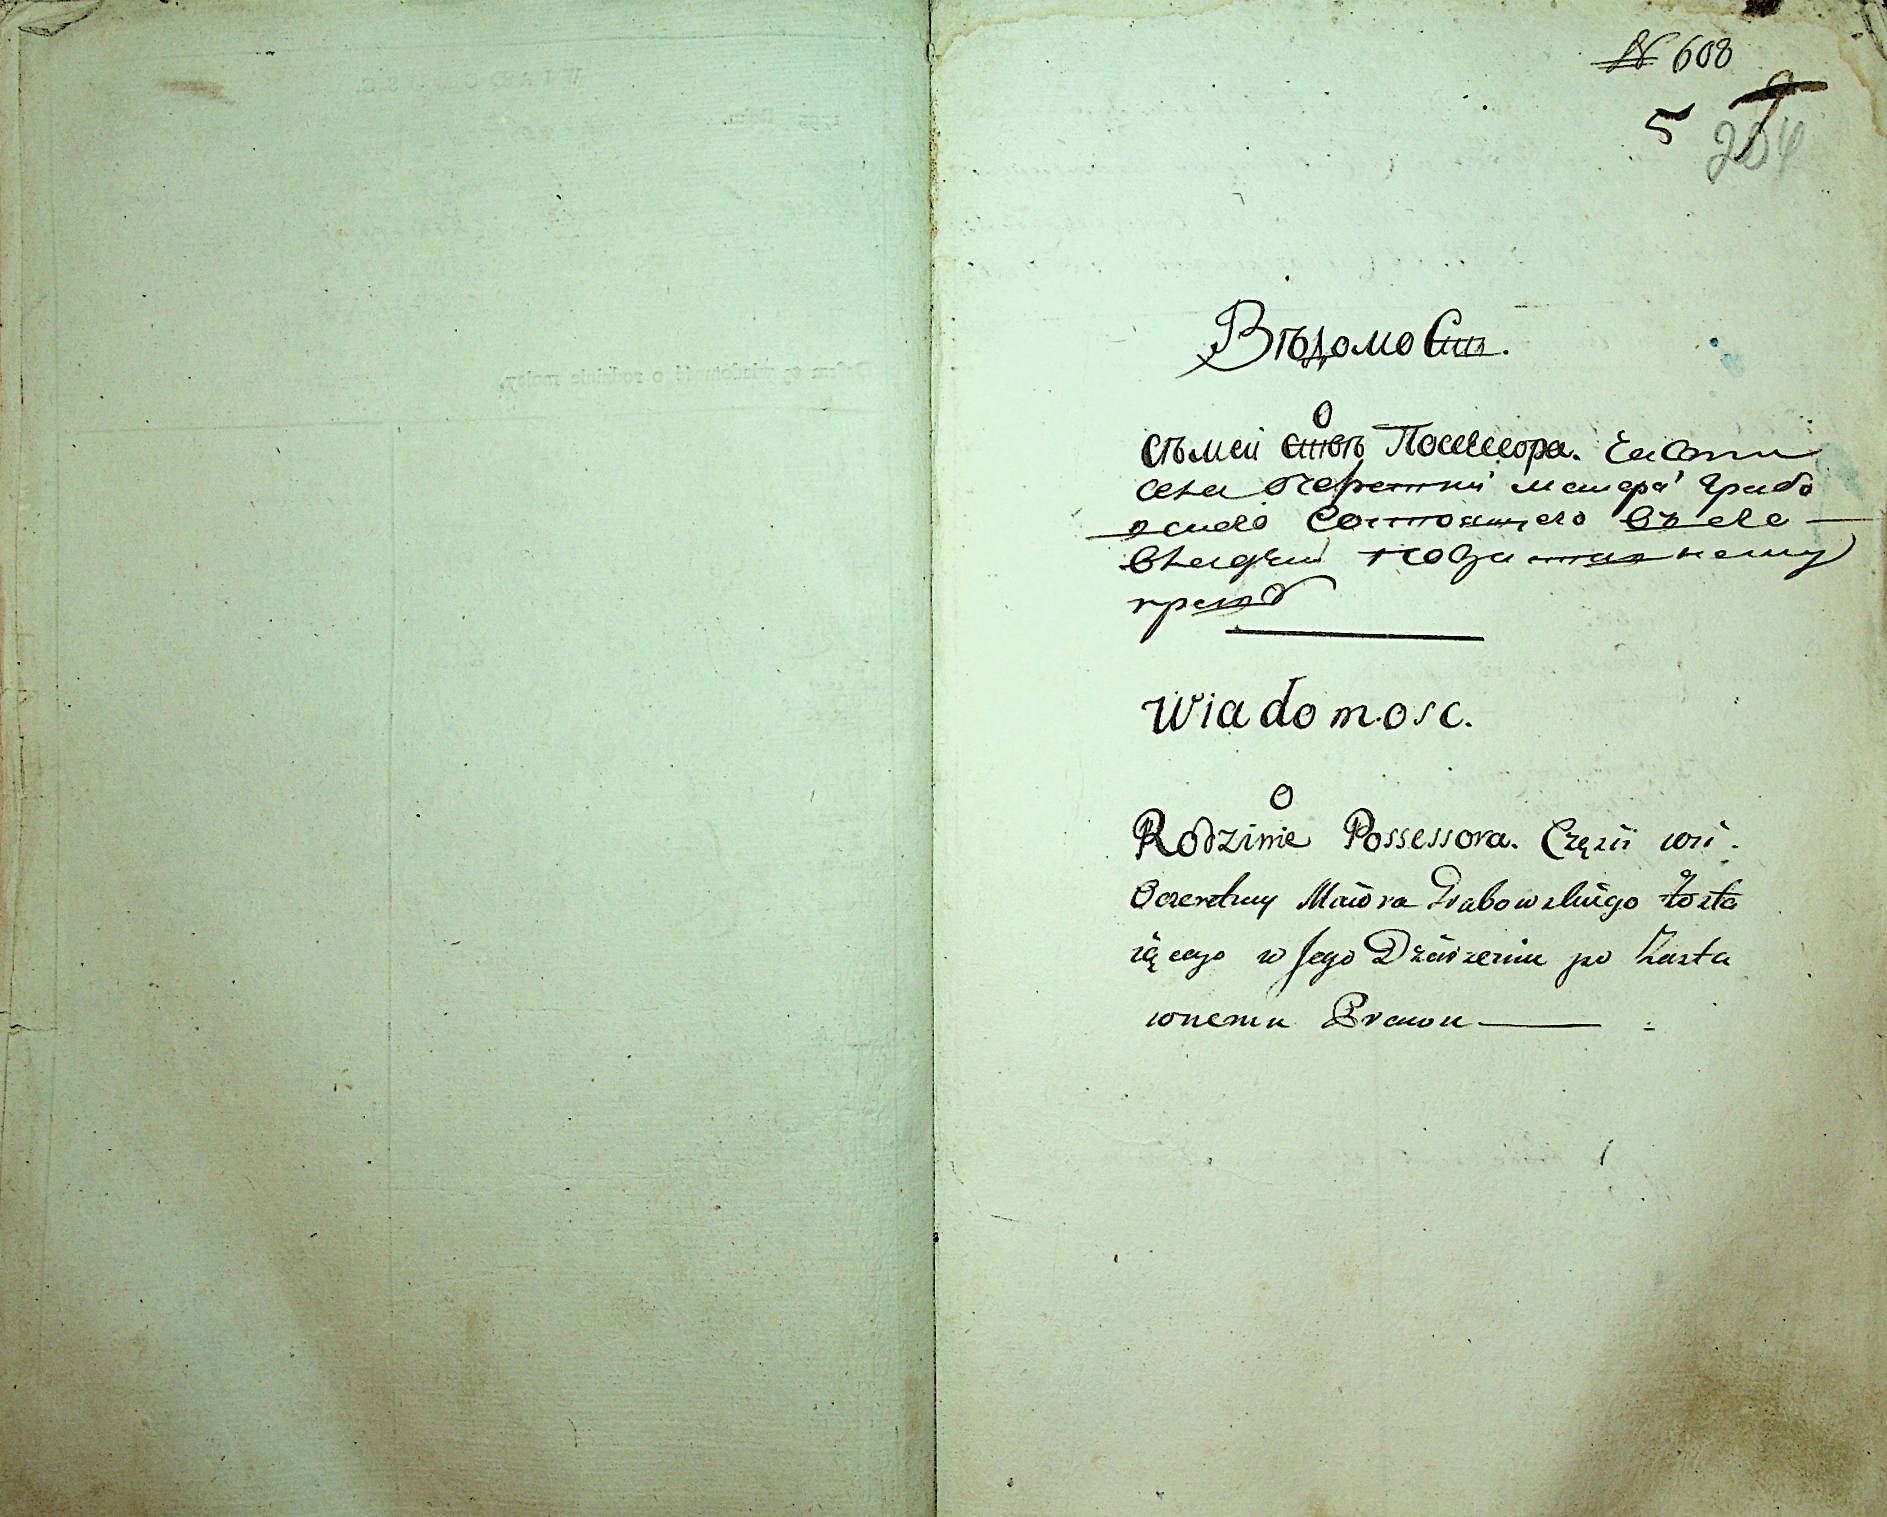 № 608
5
204
Вѣдомости.
О
Посессора. Части
села Очеретни маиора Грабо
вского Состоящего въ его
владѣнии по заставному
праву
Wiadomosc.
O
Rodzinie Possessora. Części wsi
Oczeretny Maiora Grabowskiego Zosta
iącego w Jego Dzierzeniu po Zasta
wnemu Prawu